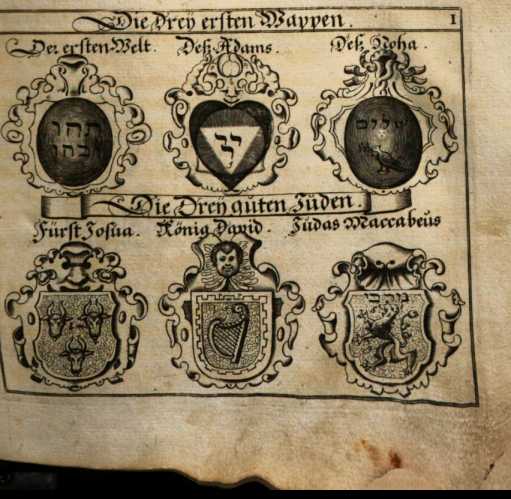 Die Drey ersten Wappen. 1
Der ersten Welt. Deß Adams. Deß Noha.
תהו
ובהו
יי
שלום
Die Drey guten Jüden.
Fürst Josua. König David. Jüdas Maccabeüs
מכבי